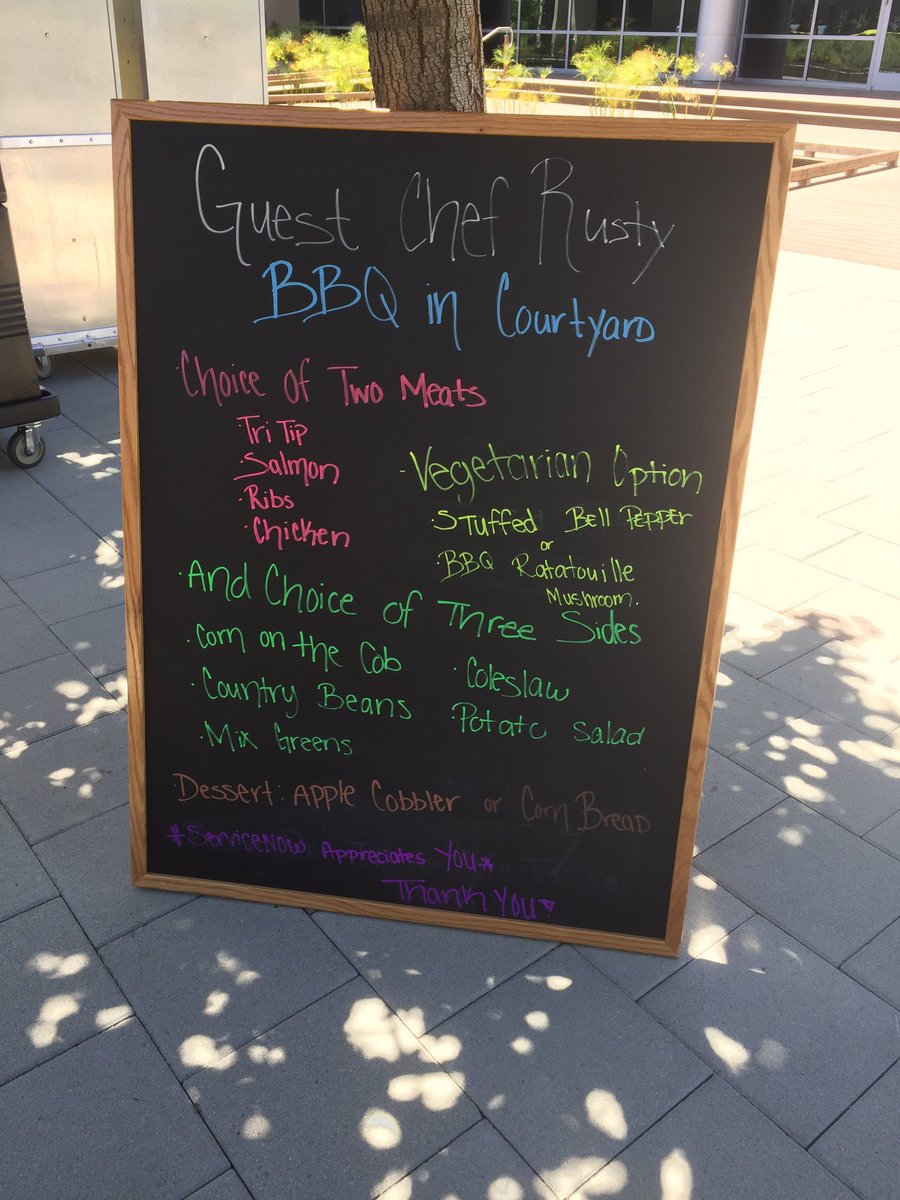 Guest Chef Rusty
BBQ in Courtyard
· Choice of Two Meats
· Tri Tip
· Salmon
· Ribs
· Chicken
· Vegetarian Option
· Stuffed Bell Pepper
or
· BBQ Ratatouille
Mushroom.
· And Choice of Three Sides
· Corn on the Cob
· Country Beans
· Mix Greens
· Coleslaw
· Potato Salad
· Dessert: Apple Cobbler or Corn Bread
* ServiceNow Appreciates You *
Thank You